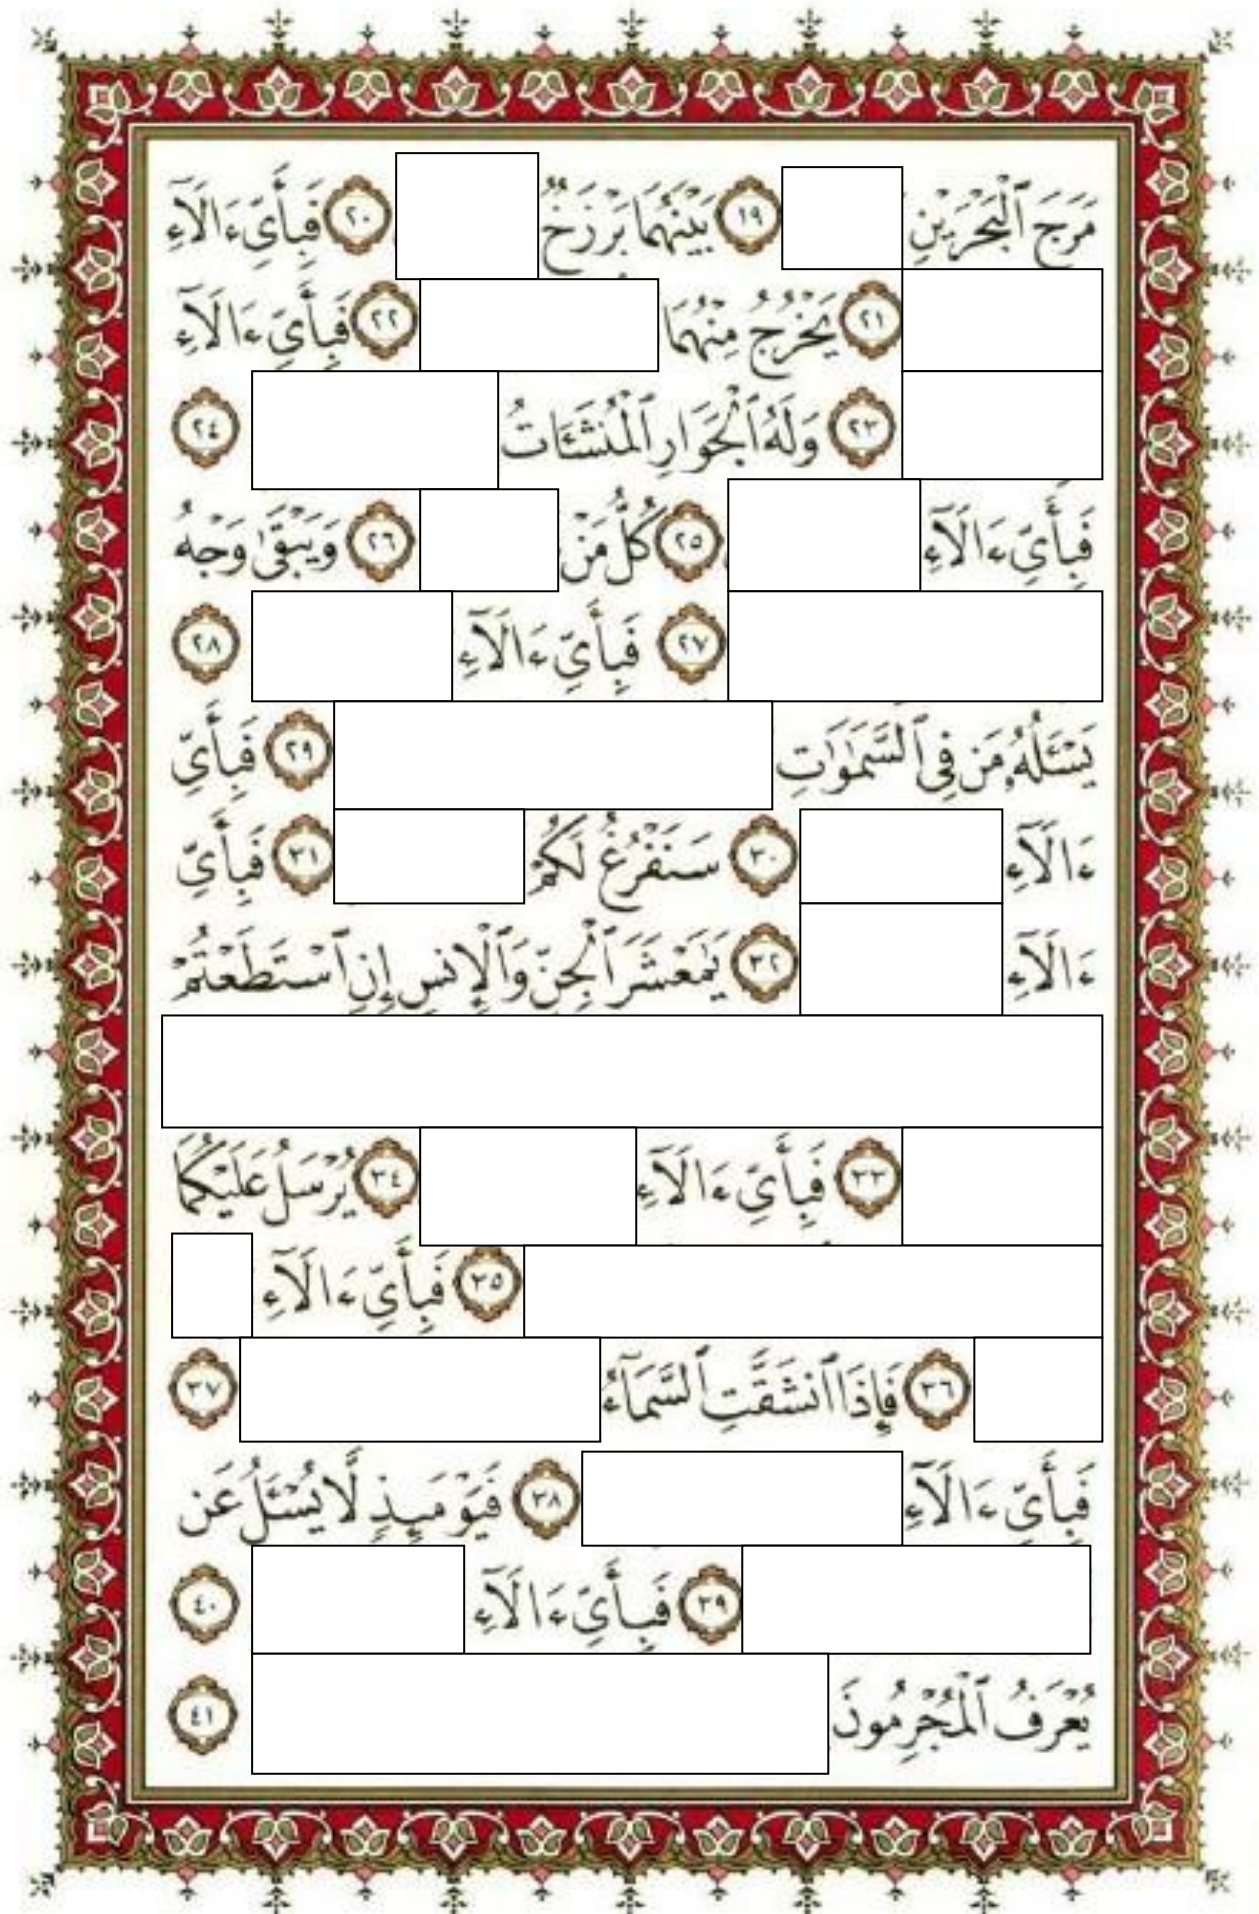 مَرَجَ ٱلْبَحْرَيْنِ ١٩ بَيْنَهُمَا بَرْزَخٌ ٢٠ فَبِأَىِّ ءَالَآءِ
٢١ يَخْرُجُ مِنْهُمَا ٢٢ فَبِأَىِّ ءَالَآءِ
٢٣ وَلَهُ ٱلْجَوَارِ ٱلْمُنشَـَٔاتُ ٢٤
فَبِأَىِّ ءَالَآءِ ٢٥ كُلُّ مَنْ ٢٦ وَيَبْقَىٰ وَجْهُ
٢٧ فَبِأَىِّ ءَالَآءِ ٢٨
يَسْـَٔلُهُۥ مَن فِى ٱلسَّمَـٰوَٰتِ ٢٩ فَبِأَىِّ
ءَالَآءِ ٣٠ سَنَفْرُغُ لَكُمْ ٣١ فَبِأَىِّ
ءَالَآءِ ٣٢ يَـٰمَعْشَرَ ٱلْجِنِّ وَٱلْإِنسِ إِنِ ٱسْتَطَعْتُمْ
٣٣ فَبِأَىِّ ءَالَآءِ ٣٤ يُرْسَلُ عَلَيْكُمَا
٣٥ فَبِأَىِّ ءَالَآءِ
٣٦ فَإِذَا ٱنشَقَّتِ ٱلسَّمَآءُ ٣٧
فَبِأَىِّ ءَالَآءِ ٣٨ فَيَوْمَئِذٍ لَّا يُسْـَٔلُ عَن
٣٩ فَبِأَىِّ ءَالَآءِ ٤٠
يُعْرَفُ ٱلْمُجْرِمُونَ ٤١